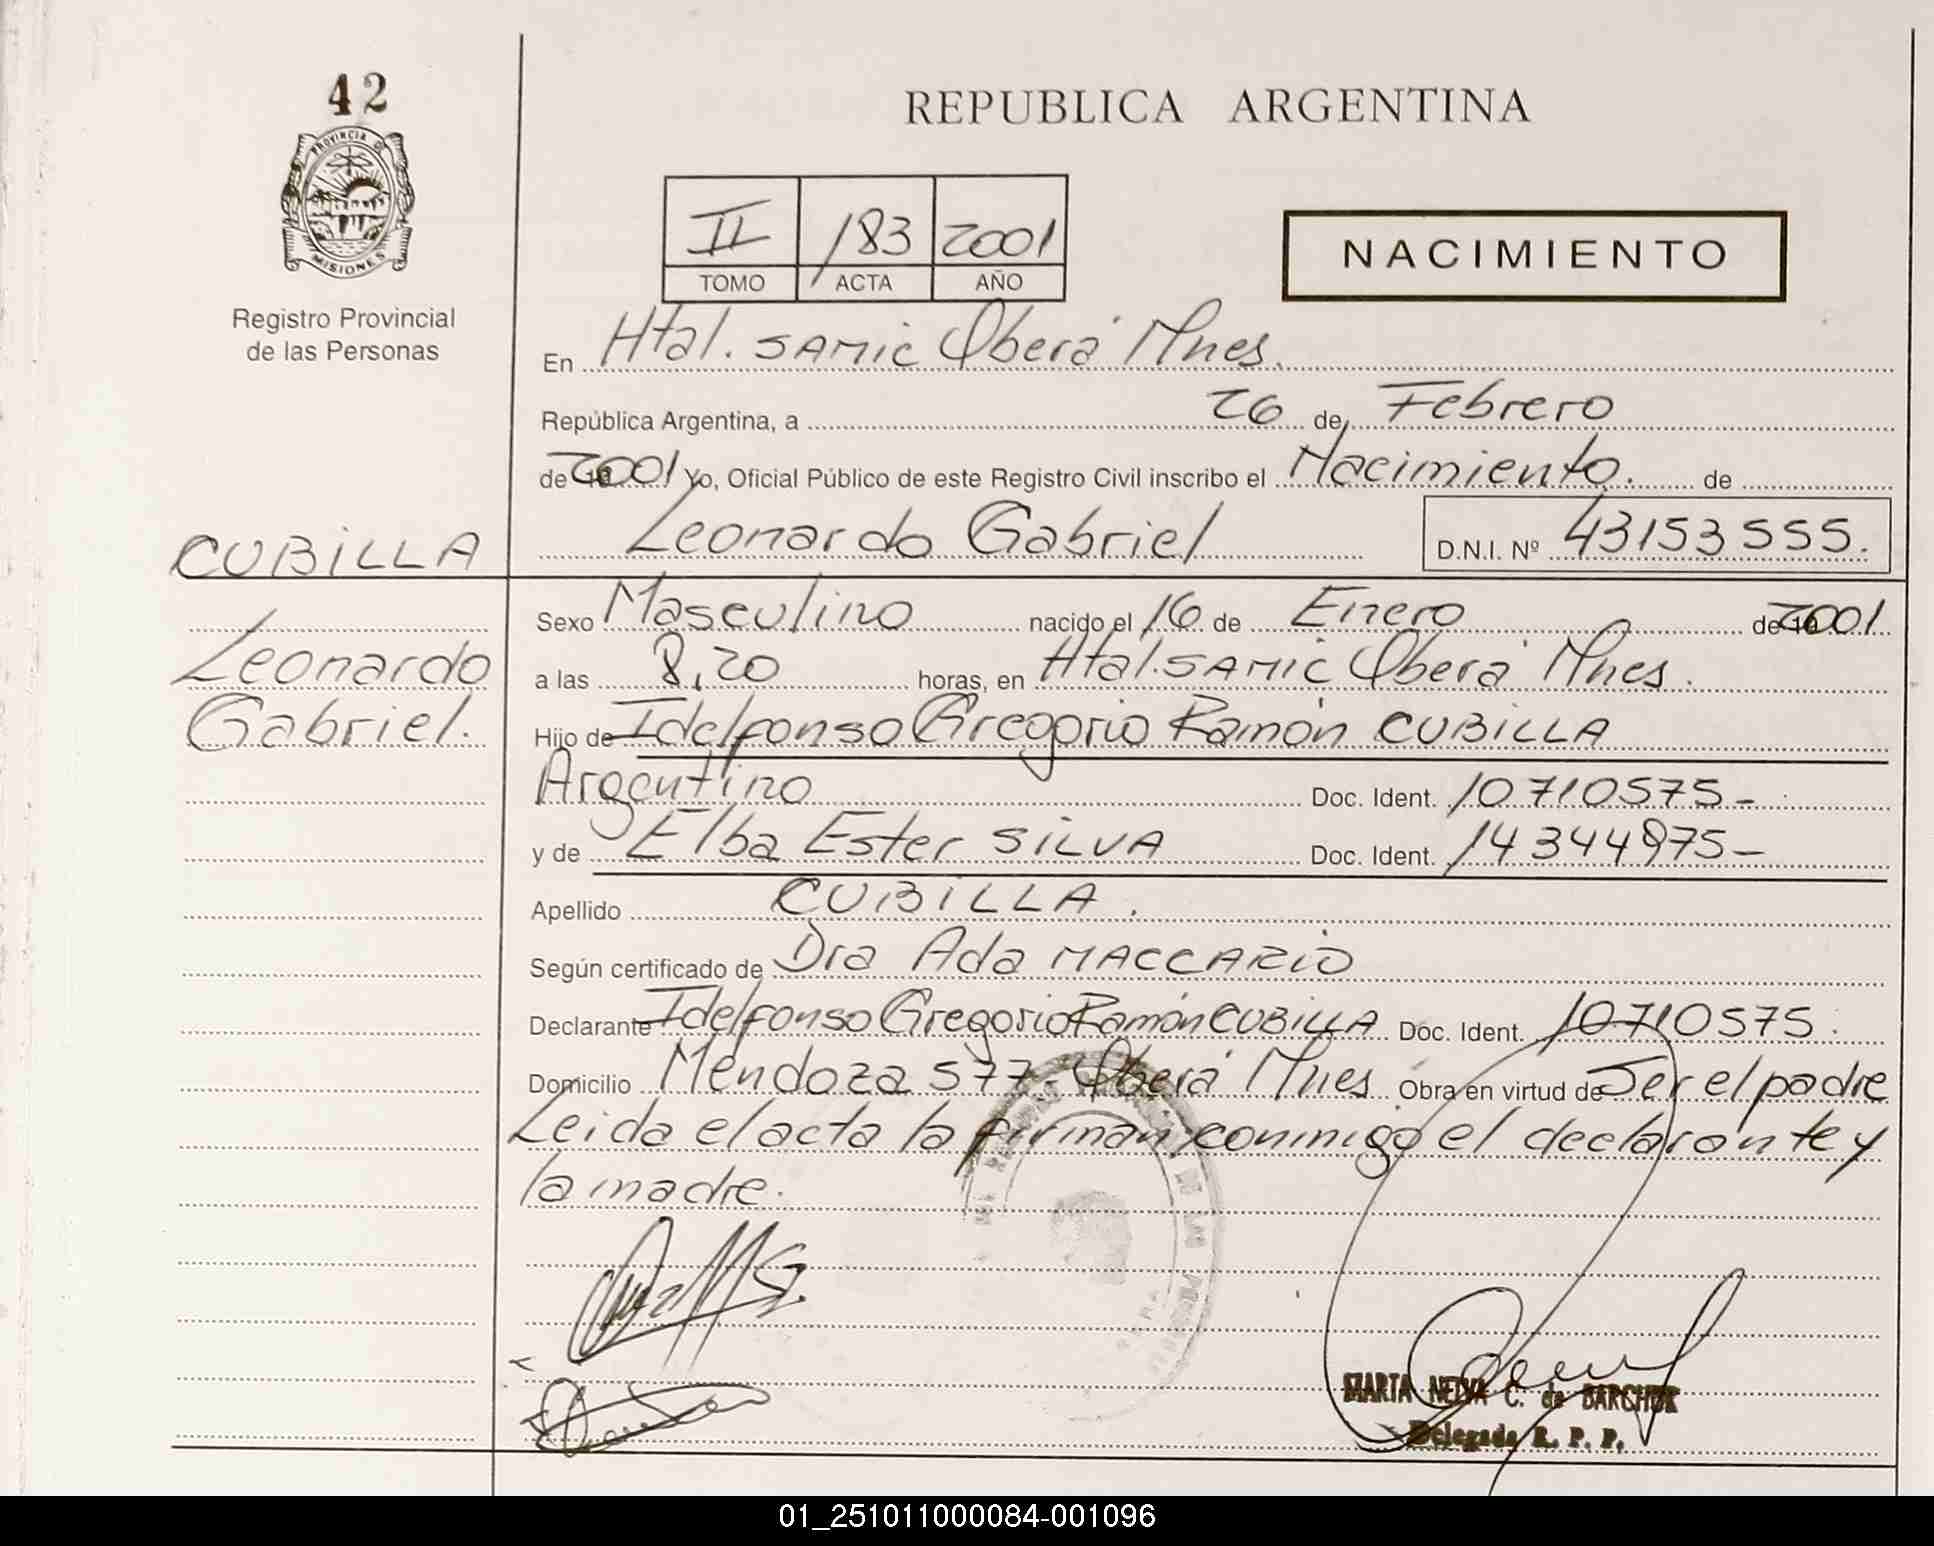 42
PROVINCIA DE
MISIONES
Registro Provincial
de las Personas
REPUBLICA ARGENTINA
II 183 2001
TOMO ACTA AÑO
NACIMIENTO
En Htal. SAMIC Oberá Mnes.
República Argentina, a 26 de Febrero
de 2001 Yo, Oficial Público de este Registro Civil inscribo el Nacimiento. de
Leonardo Gabriel D.N.I. Nº 43153555.
CUBILLA
Leonardo
Gabriel.
Sexo Masculino nacido el 16 de Enero de 2001
a las 8,20 horas, en Htal. SAMIC Oberá Mnes.
Hijo de Idelfonso Gregorio Ramón CUBILLA
Argentino Doc. Ident. 10710575-
y de Elba Ester SILVA Doc. Ident. 14344975-
Apellido CUBILLA.
Según certificado de Dra Ada MACCARIO
Declarante Idelfonso Gregorio Ramón CUBILLA Doc. Ident. 10710575.
Domicilio Mendoza 577. Oberá Mnes Obra en virtud de Ser el padre
Leida el acta la firman conmigo el declarante y
la madre.
MARTA NEIVA C. de BARCHUK
Delegada R. P. P.
01_251011000084-001096